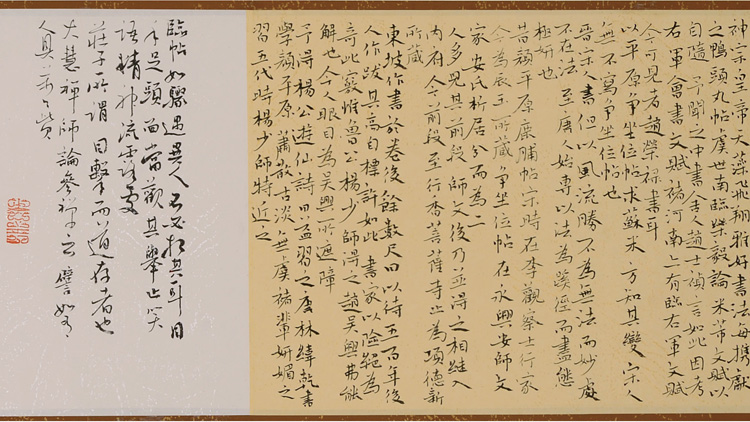 神宗皇帝天藻飛翔雅好書法每携獻
之鴨頭丸帖虞世南臨樂毅論米芾文賦以
自隨予聞之中書舍人趙士禎言如此因考
右軍曾書文賦褚河南上有臨右軍文賦
今可見者趙榮祿書耳
以平原爭坐位帖求蘇米方知其變宋人
無不寫爭坐位帖也
晉宋人書但以風流勝不為無法而妙處
不在法至唐人始專以法為蹊徑而盡態
極妍也
昔顏平原鹿脯帖宋時在李觀察士行家
今為辰玉所藏爭坐位帖在永興安師文
家安氏析居分而為二
人多見其前段師文後乃並得之相繼入
內府今前段至行香菩薩寺止為項德新
所藏
東坡作書於卷後餘數尺曰以待五百年後
人作跋其高自標許如此書家以險絕為
奇此竅惟魯公楊少師得之趙吳興弗能
解也今人眼目為吳興所遮障
予得楊公遊仙詩日益習之唐林緯乾書
學顏平原蕭散古淡無虞褚輩妍媚之
習五代時楊少師特近之
臨帖如驟遇異人不必相其耳目
手足頭面當觀其舉止笑
語精神流露處
莊子所謂目擊而道存者也
大慧禪師論參禪云譬如有
人具萬萬貲